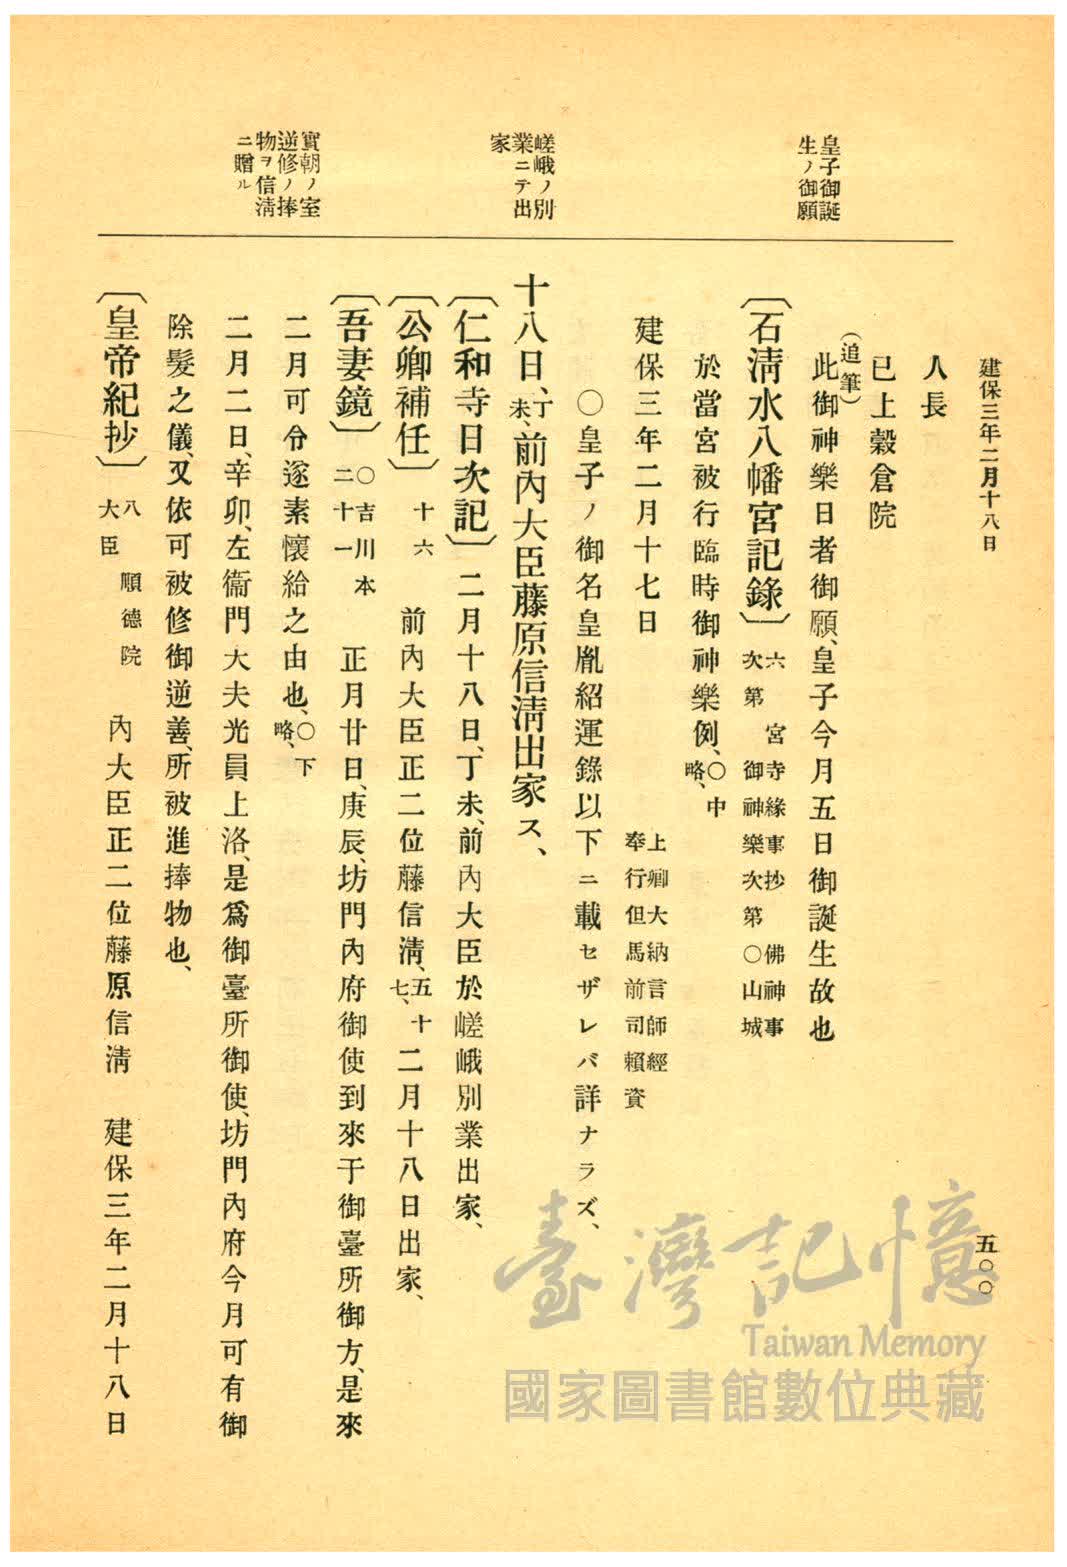 建保三年二月十八日
五〇〇
皇子御誕
生ノ御願
嵯峨ノ別
業ニテ出
家
實朝ノ室
逆修ノ捧
物ヲ信淸
ニ贈ル
人長
已上穀倉院
(追筆)
此御神樂日者御願、皇子今月五日御誕生故也
〔石淸水八幡宮記錄〕六 宮寺緣事抄 佛神事
次第 御神樂次第〇山城
於當宮被行臨時御神樂例、〇中
略、
建保三年二月十七日
上卿大納言師經
奉行但馬前司賴資
〇皇子ノ御名皇胤紹運錄以下ニ載セザレバ詳ナラズ、
十八日、丁未、前內大臣藤原信淸出家ス、
〔仁和寺日次記〕二月十八日、丁未、前內大臣於嵯峨別業出家、
〔公卿補任〕十六 前內大臣正二位藤信淸、五十七、二月十八日出家、
〔吾妻鏡〕〇吉川本
二十一 正月廿日、庚辰、坊門內府御使到來于御臺所御方、是來
二月可令遂素懷給之由也、〇下
略、
二月二日、辛卯、左衞門大夫光員上洛、是爲御臺所御使、坊門內府今月可有御
除髮之儀、又依可被修御逆善、所被進捧物也、
〔皇帝紀抄〕八 順德院
大臣 內大臣正二位藤原信淸 建保三年二月十八日
臺灣記憶
Taiwan Memory
國家圖書館數位典藏